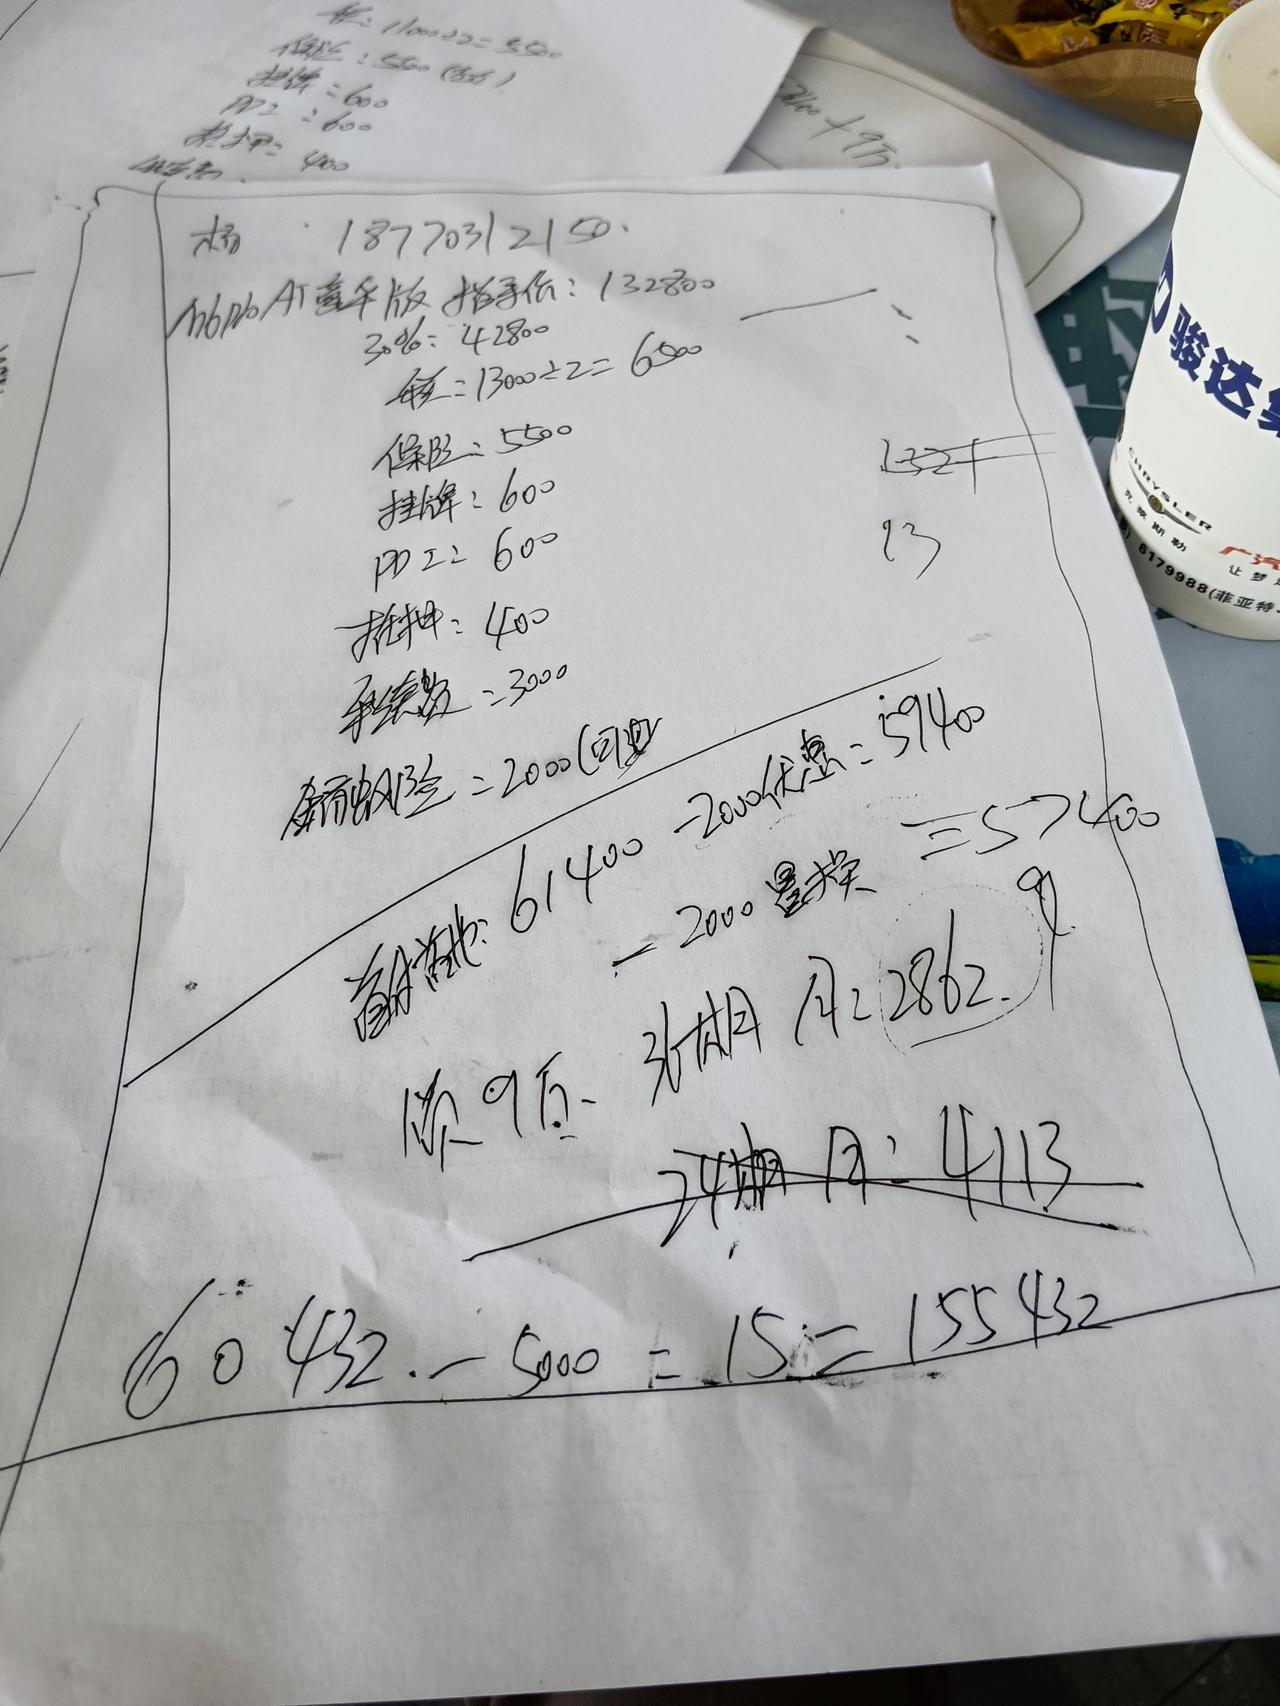 税：11000÷2=5500
保险：5500
挂牌：600
PDI：600
抵押：400
+9万
杨 18770312150.
AT豪华版 指导价：132800
30%：42800
税：13000÷2=6500
保险：5500
挂牌：600
PDI：600
抵押：400
手续费：3000
续保风险：2000(可退
1321
13
首付落地：61400 -2000优惠=59400
-2000置换 =57400
贷9万 36期 月：2862.9
24期 月：4113
60432.-5000=15=155432
骏达集
CHRYSLER
克莱斯勒
广汽
让梦
6179988(菲亚特